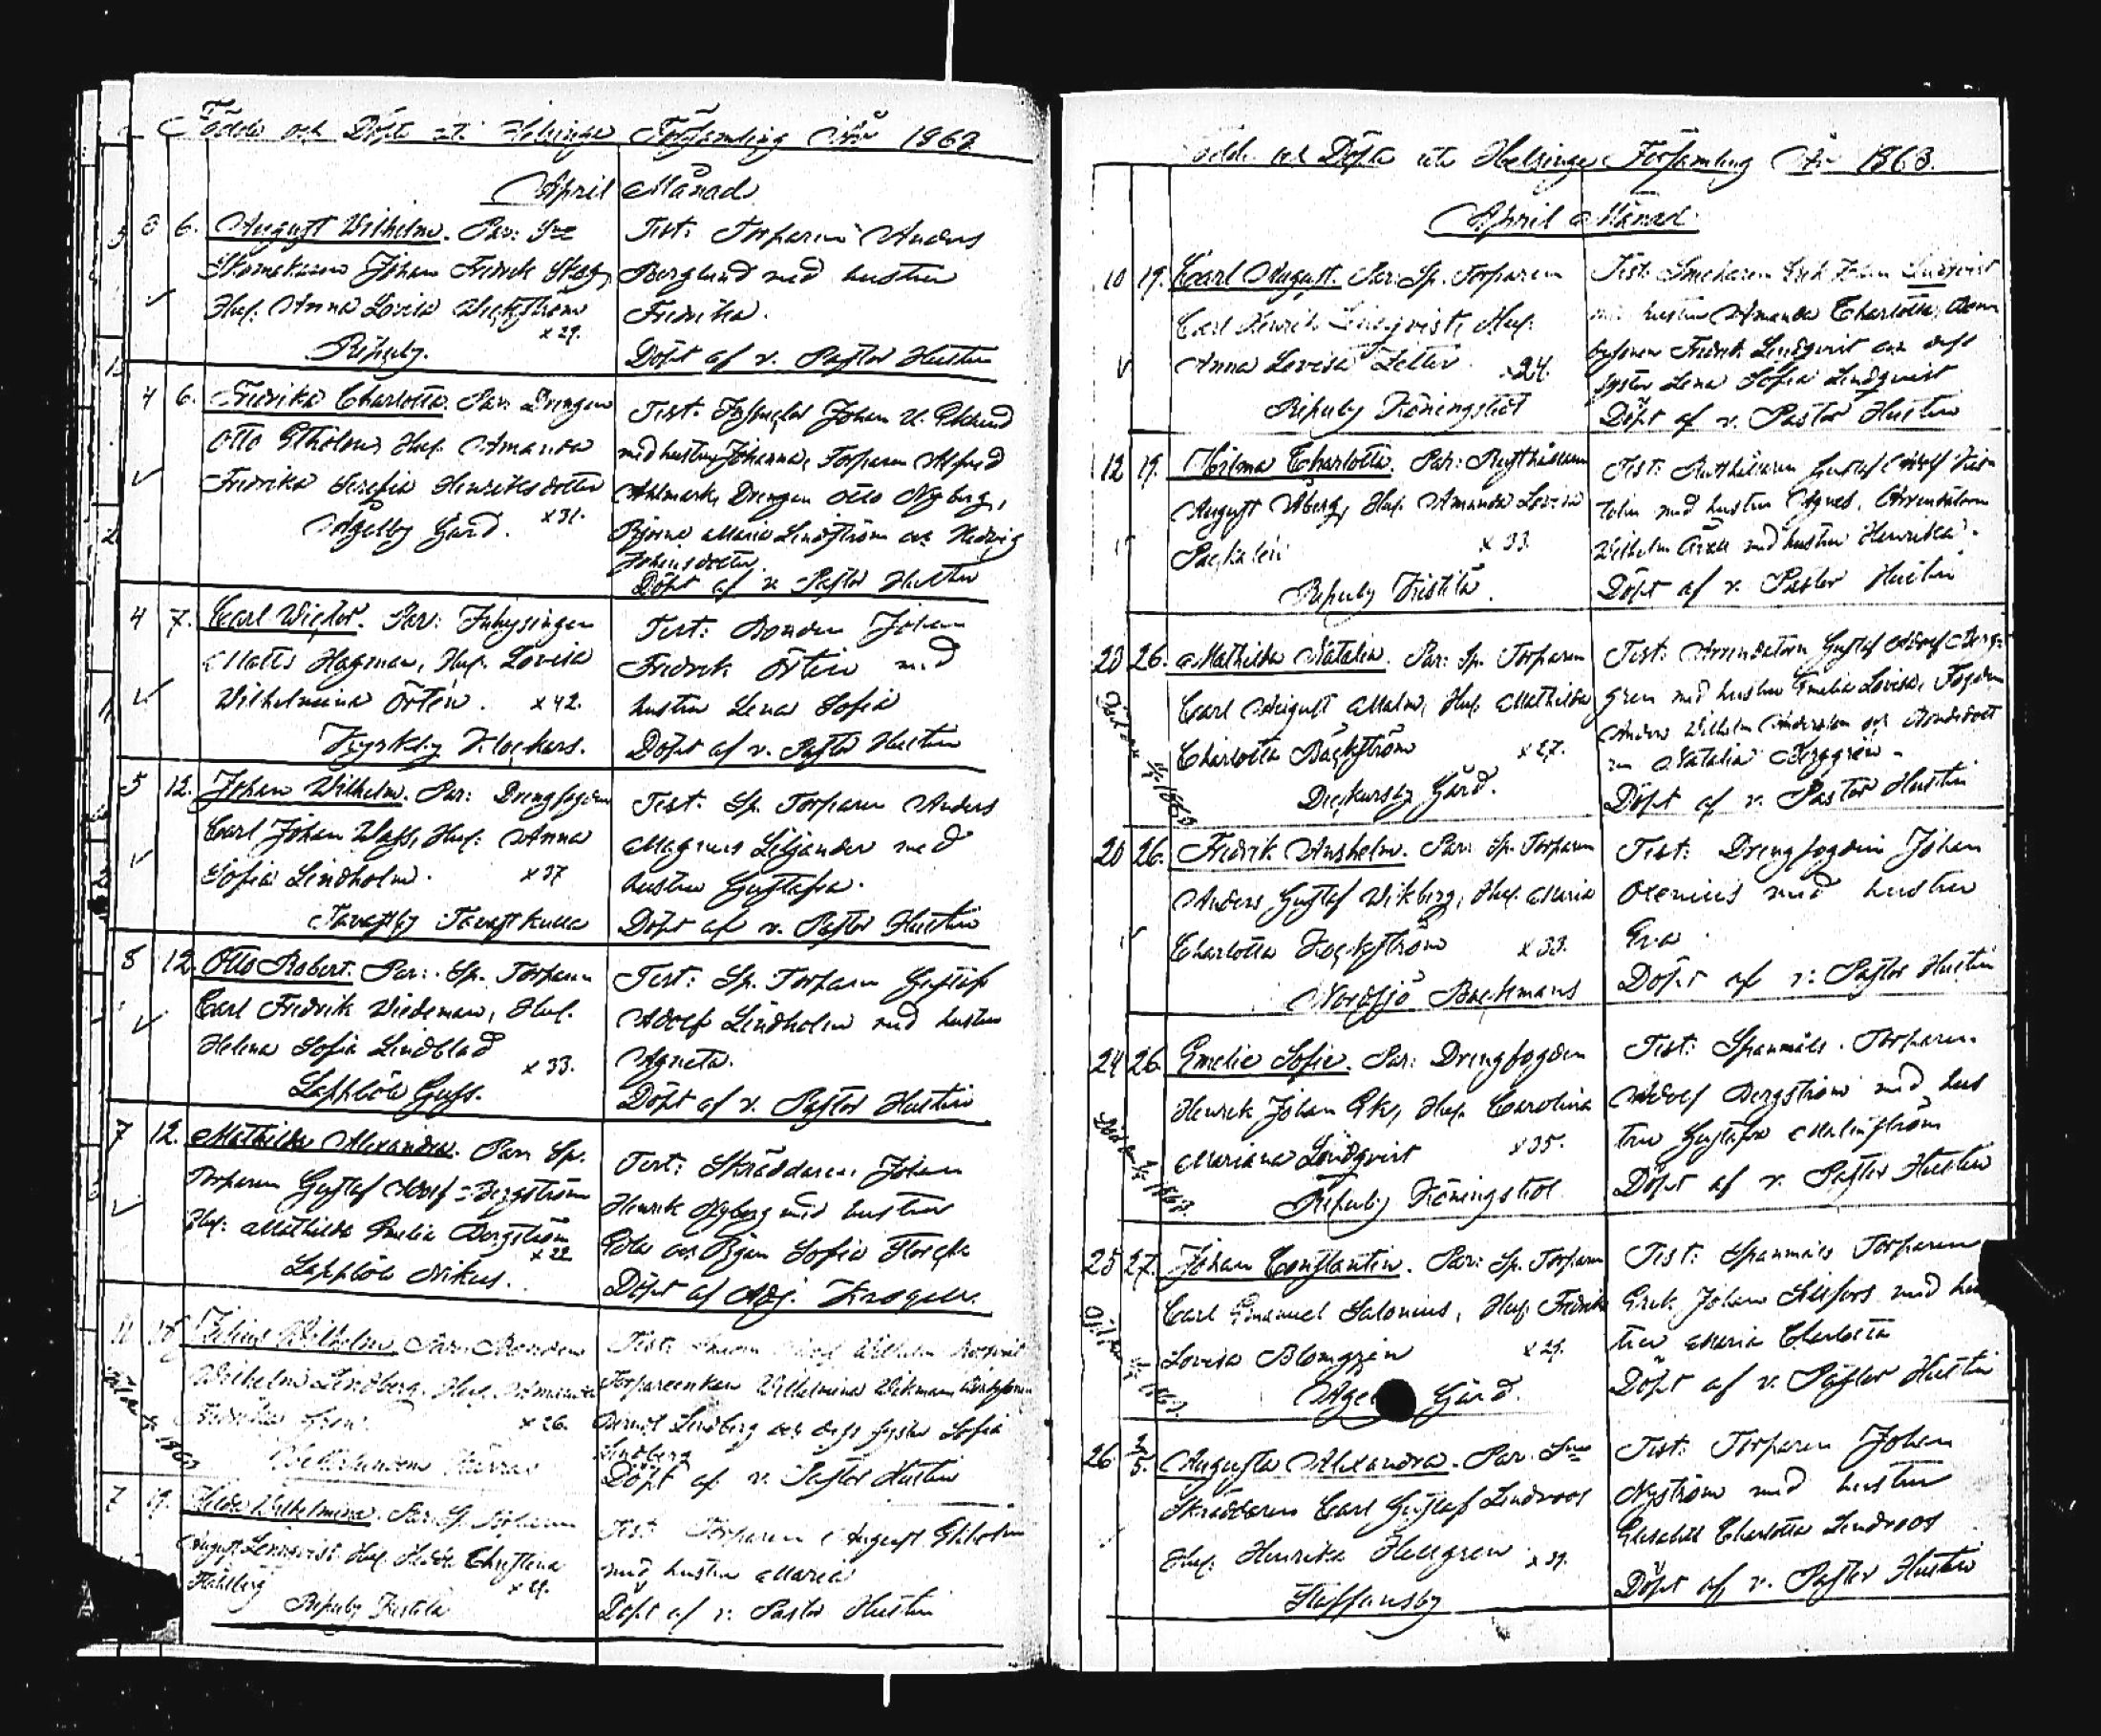 Födde och Döpte uti Helsinge Församling År 1863
April Månad
3 6. August Wilhelm. Par: Sne
Skomakaren Johan Fredrik Skog,
Hus. Anna Lovisa Weckström
x 29.
Ripuby.
Test: Torparen Anders
Berglund med hustru
Fredrika.
Döpt af v. Pastor Hustin
4 6. Fredrika Charlotta. Par: Drengen
Otto Ekholm, Hus. Amanda
Fredrika Serafia Henriksdotter
x 31.
Ågelby Gård.
Test: Johan U. Eklund
med hustru Johanna, Torparen Alfred
Ahlmark, Drengen Otto Nyberg,
Maria Lindström och Hedvig
Johansdotter.
Döpt af v. Pastor Hustin
4 7. Carl Wictor. Par: Inhysingen
Matts Hagman, Hus. Lovisa
Wilhelmina Örten. x 42.
Kyrkby Klockars.
Test: Bonden Johan
Fredrik Örten med
hustru Lena Sofia
Döpt af v. Pastor Hustin
5 12. Johan Wilhelm. Par: Drengfogden
Carl Johan Wass, Hus: Anna
Sofia Lindholm. x 37
Tavastby Tavastkulla
Test: Sp. Torparen Anders
Magnus Liljander med
hustru Gustafva.
Döpt af v. Pastor Hustin
8 12. Otto Robert. Par: Sp. Torparen
Carl Fredrik Wiedeman, Hus.
Helena Sofia Lindblad
x 33.
Lappböle Guss.
Test: Sp. Torparen Gustaf
Adolf Lindholm med hustru
Agneta.
Döpt af v. Pastor Hustin
7 12. Mathilda Alexandra. Par: Sp.
Torparen Gustaf Adolf Bergström
Hus: Mathilda Emelia Bergström
x 22
Lappböle Nikus.
Test: Skräddaren Johan
Henrik Nyberg med hustru
Eda och Pigan Sofia
Döpt af Adj. Krogell.
Julius Wilhelm. Par: Bonden
Wilhelm Lindberg, Hus. Amanda
Fredrika
x 26.
Test: Adolf Wilhelm
Torpareenkan Wilhelmina Wikman, Bondesonen
Lindberg och dess syster Sofia
Lindberg
Döpt af v. Pastor Hustin
7 19. Hilda Wilhelmina. Par: Sp. Torparen
August Lönnqvist, Hus. Hedda Christina
Fahlberg x 29.
Ripuby Fastila
Test: Torparen August Ekholm
med hustru Maria
Döpt af v. Pastor Hustin
Födde och Döpte uti Helsinge Församling År 1863.
April Månad
10 19. Carl August. Par: Sp. Torparen
Carl Henrik Lindqvist, Hus.
Anna Lovisa Zetter. x 24.
Ripuby Köningstedt
Test: Erik Johan Lindqvist
med hustru Amanda Charlotta, Bonde
sonen Fredrik Lindqvist och dess
syster Lena Sofia Lindqvist
Döpt af v. Pastor Hustin
12 19. Wilma Charlotta. Par: Rusthållaren
August Åberg, Hus. Amanda Lovisa
x 33.
Ripuby Fastila.
Test: Rusthållaren Gustaf Adolf
med hustru Agnes, Arrendatorn
Wilhelm med hustru Henrika.
Döpt af v. Pastor Hustin
20 26. Mathilda Natalia. Par: Sp. Torparen
Carl August Malm, Hus. Mathilda
Charlotta Bäckström x 27.
Dickursby Gård.
Test: Arrendatorn Gustaf Adolf Berg-
gren med hustru Emelia Lovisa, Fogden
Anders Wilhelm Andersson och Bondedott
ren Natalia Berggren.
Döpt af v. Pastor Hustin
20 26. Fredrik Anshelm. Par: Sp. Torparen
Anders Gustaf Wikberg, Hus. Maria
Charlotta x 33.
Nordsjö Backmans
Test: Drengfogden Johan
Oxenius med hustru
Eva.
Döpt af v. Pastor Hustin
24 26. Emelie Sofie. Par: Drengfogden
Henrik Johan Ek, Hus. Carolina
Mariana Lindqvist x 35.
Ripuby Köningstedt.
Test: Spanmåls Torparen
Adolf Bergström med hus
tru Gustafva Malmström
Döpt af v. Pastor Hustin
25 27. Johan Constantin. Par: Sp. Torparen
Carl Emanuel Salonius, Hus. Fredrika
Lovisa Blomgren x 29.
Gård.
Test: Spanmåls Torparen
Erik Johan Silfors med hus
tru Maria Charlotta
Döpt af v. Pastor Hustin
26 3/5. Augusta Alexandra. Par: Sne
Skräddaren Carl Gustaf Lindroos
Hus. Henrika Hellgren x 39.
Staffansby
Test: Torparen Johan
Nyström med hustru
Charlotta Lindroos
Döpt af v. Pastor Hustin